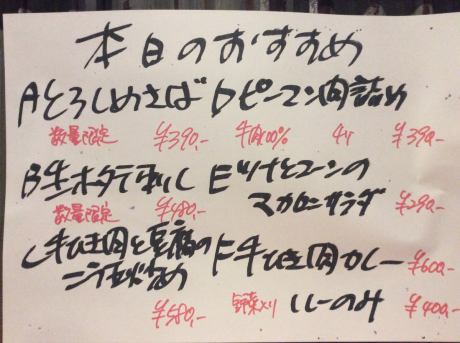 本日のおすすめ
Aとろしめさば
数量限定 ¥390,-
B生ホタテ刺し
数量限定 ¥480,-
C牛ひき肉と豆腐の
¥580,-
Dピーマン肉詰め
牛肉100% 4ヶ ¥390-
Eツナとコーンの
マカロニサラダ ¥290-
F牛ひき肉カレー ¥600-
野菜入り ルーのみ ¥400-